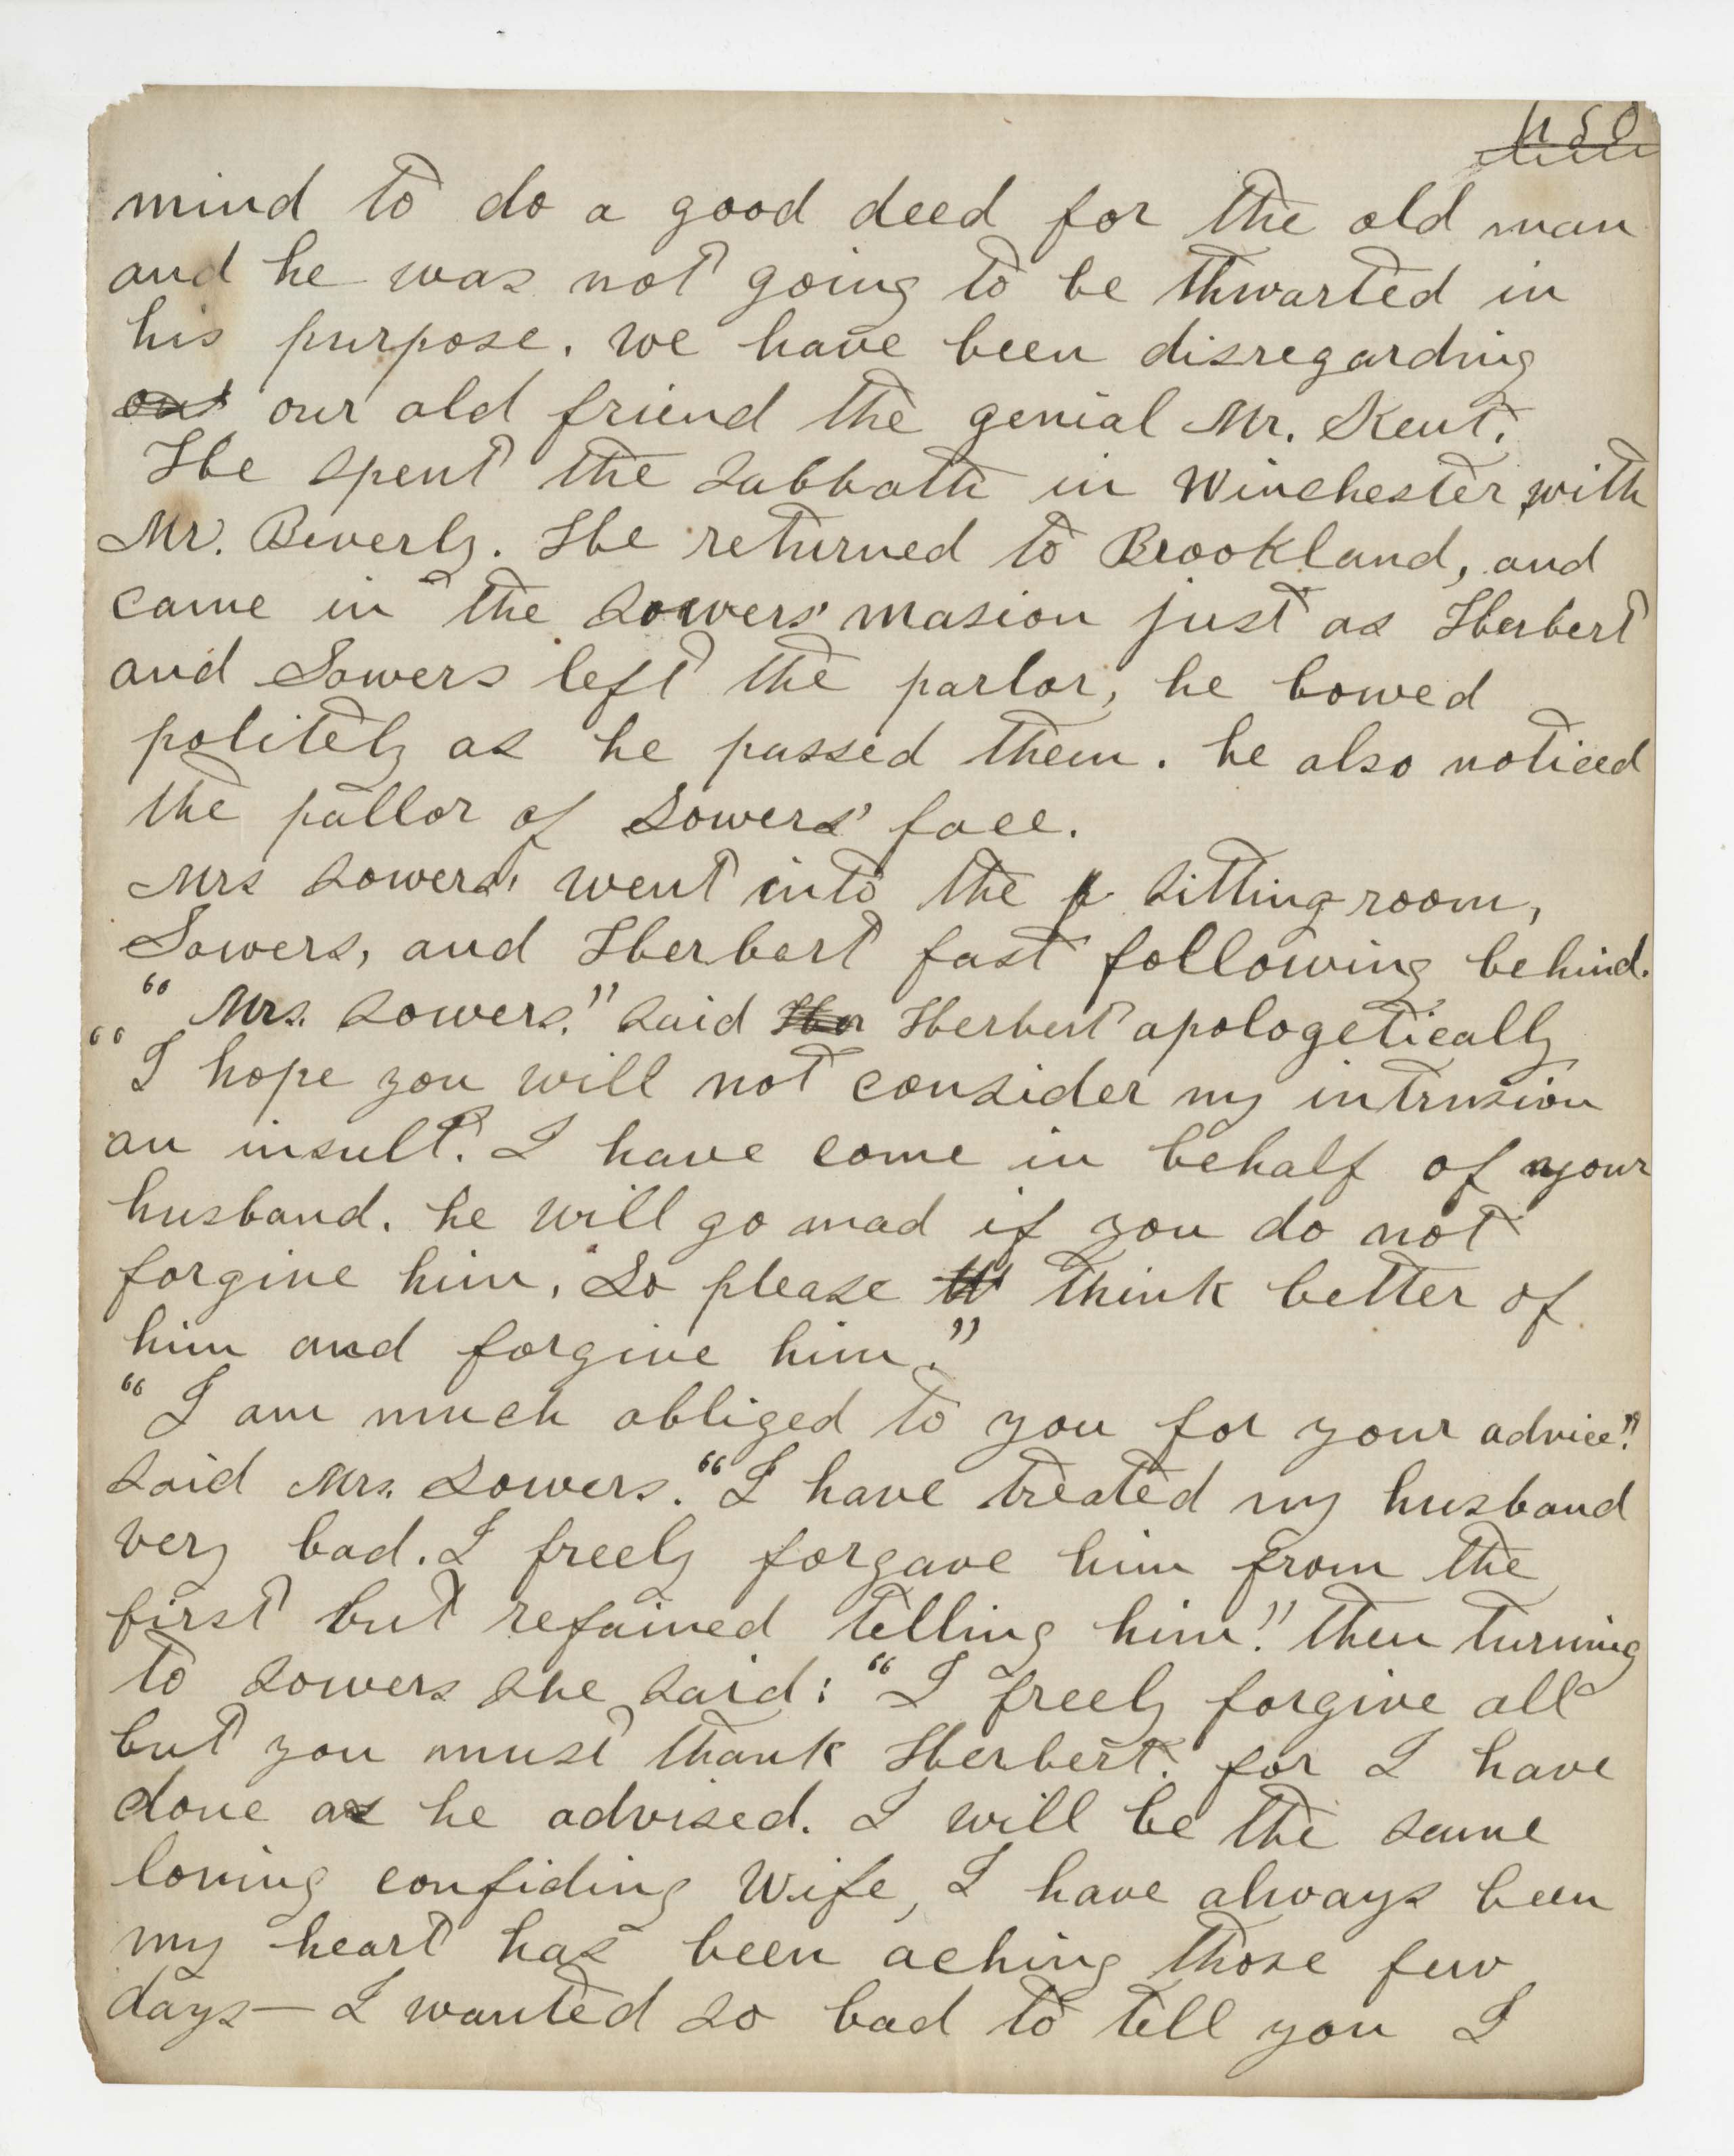 450
mind to do a good deed for the old man
and he was not going to be thwarted in
his purpose. we have been disregarding
our our old friend the genial Mr. Kent.
He spent the Sabbath in Winchester, with
Mr. Beverly. He returned to Brookland, and
came in the Sowers' masion just as Herbert
and Sowers left the parlor, he bowed
politely as he passed them. he also noticed
the pallor of Sowers' face.
Mrs Sowers, went into the p sitting room,
Sowers, and Herbert fast following behind.
"Mrs. Sowers." said Her Herbert apologetically
"I hope you will not consider my intrusion
an insult. I have come in behalf of your
husband. he will go mad if you do not
forgive him, So please think better of
him and forgive him."
"I am much obliged to you for your advice."
said Mrs. Sowers. "I have treated my husband
very bad. I freely forgave him from the
first but refained telling him." then turning
to Sowers she said: "I freely forgive all
but you must thank Herbert. for I have
done as he advised. I will be the same
loving confiding Wife, I have always been
my heart has been aching those few
days— I wanted so bad to tell you I